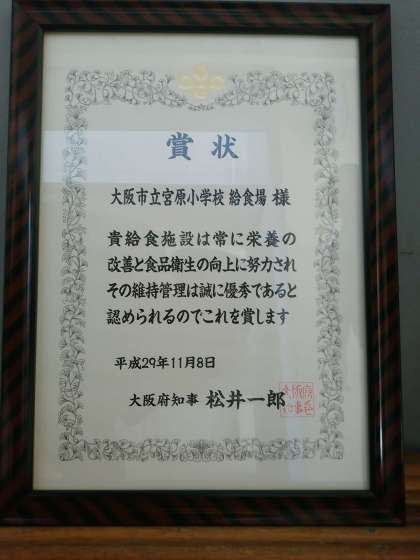 賞状
大阪市立宮原小学校 給食場 様
貴給食施設は常に栄養の
改善と食品衛生の向上に努力され
その維持管理は誠に優秀であると
認められるのでこれを賞します
平成29年11月8日
大阪府知事 松井一郎